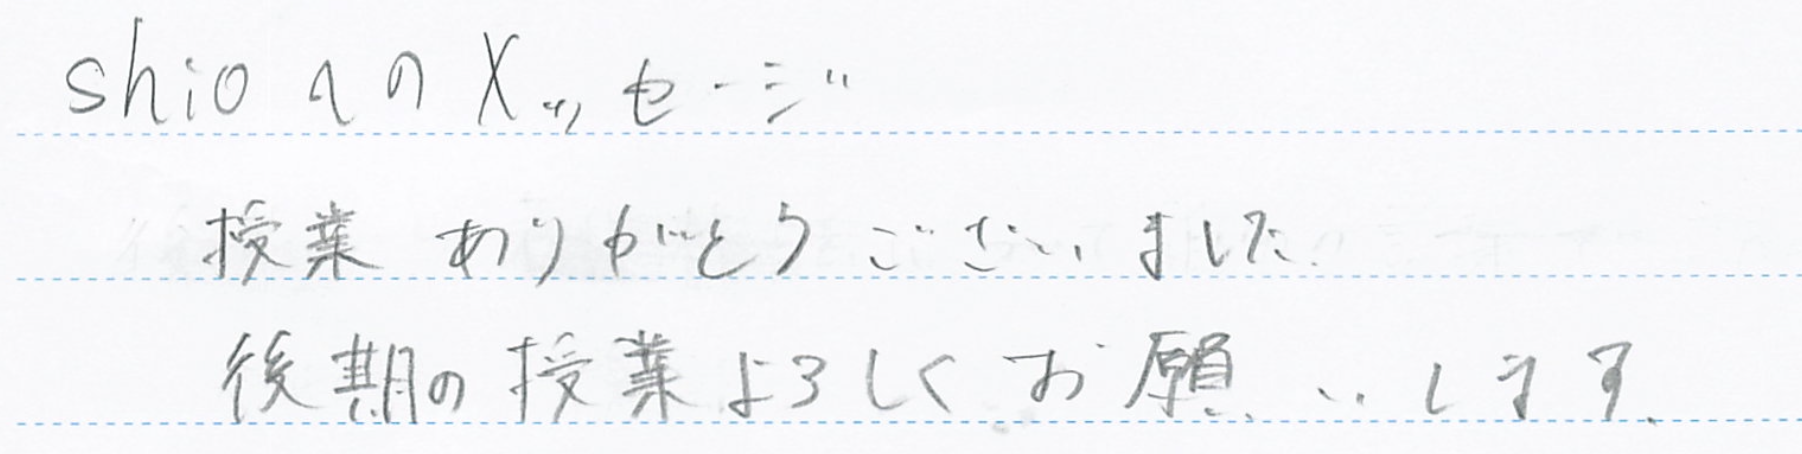 shioへのメッセージ
授業ありがとうございました.
後期の授業よろしくお願いします.